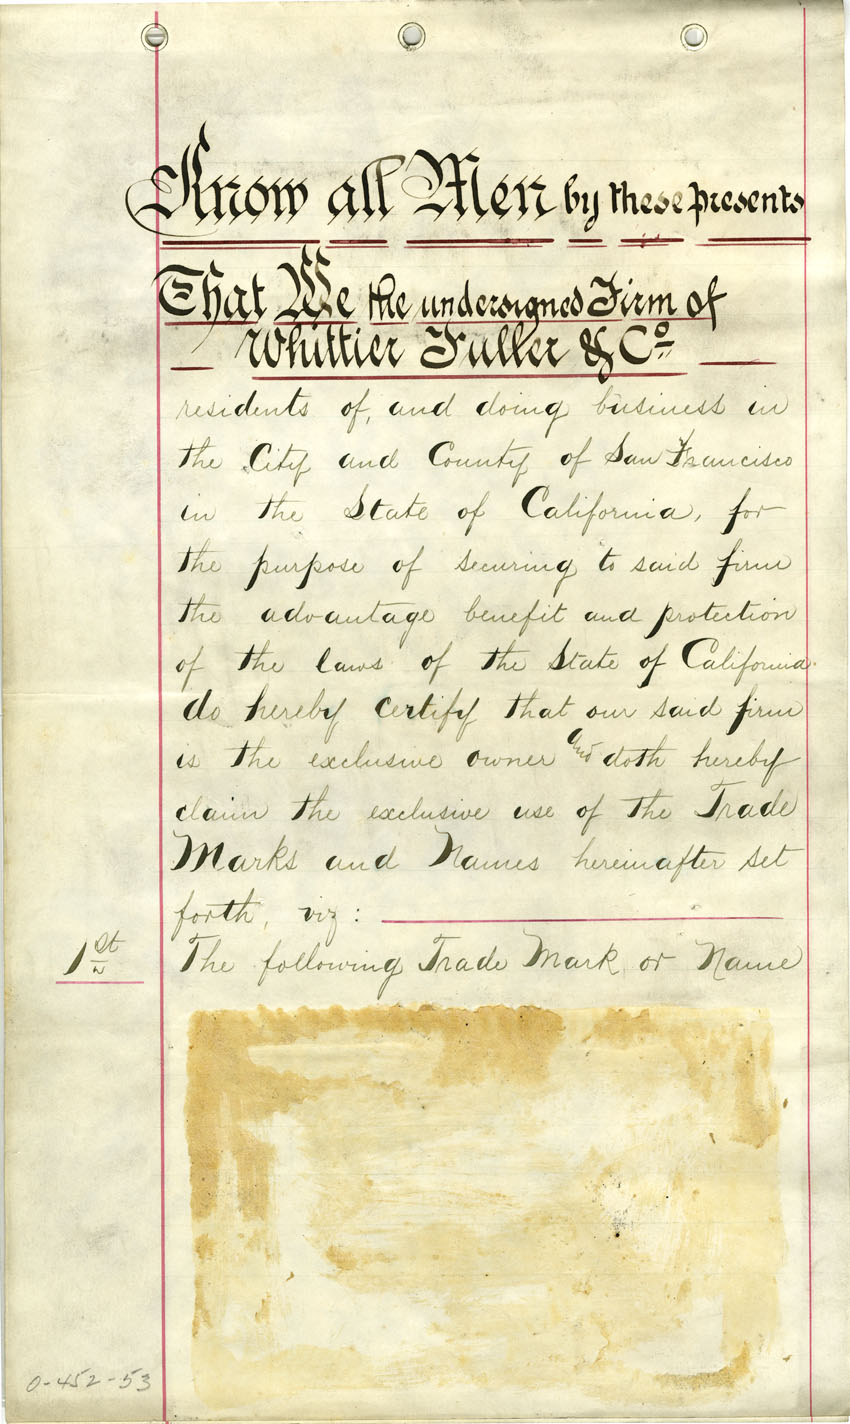 Know all Men by these presents
That We the undersigned Firm of
Whittier Fuller & Co
residents of, and doing business in
the City and County of San Francisco
in the State of California, for
the purpose of securing to said firm
the advantage benefit and protection
of the laws of the State of California
do hereby certify that our said firm
is the exclusive owner and doth hereby
claim the exclusive use of the Trade
Marks and Names hereinafter set
forth, viz:
1st The following Trade Mark or Name
0-452-53